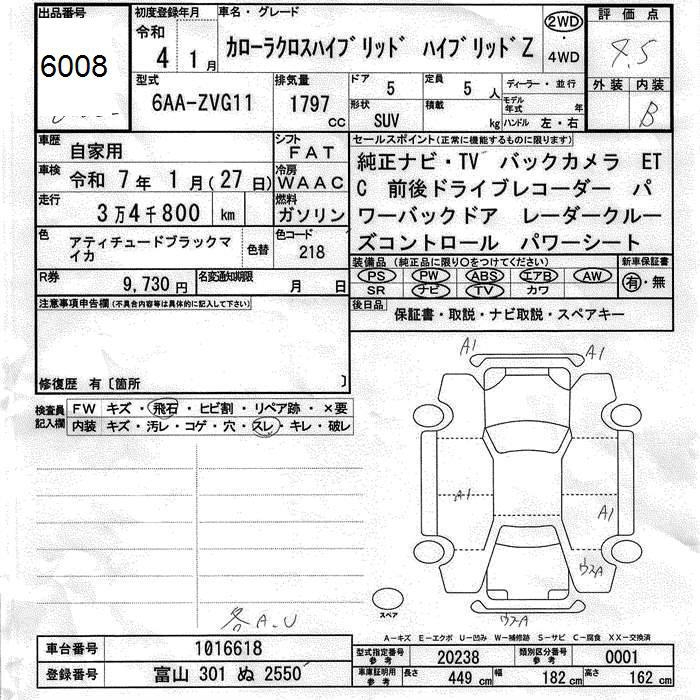 出品番号 6008
初度登録年月 令和 4 1月
車名・グレード カローラクロスハイブリッド ハイブリッドZ
2WD・4WD
評価点 4.5
外装 内装 B
型式 6AA-ZVG11
排気量 1797 CC
ドア 5
定員 5人
ディーラー・並行
形状 SUV
積載 kg
モデル年式 年
ハンドル 左・右
車歴 自家用
シフト FAT
車検 令和 7年 1月(27日)
冷房 WAAC
走行 3万4千800 km
燃料 ガソリン
色 アティチュードブラックマイカ
色替
色コード 218
R券 9,730円
名変通知期限 月 日
セールスポイント(正常に機能するものに限ります)
純正ナビ・TV バックカメラ ET
C 前後ドライブレコーダー パ
ワーバックドア レーダークルー
ズコントロール パワーシート
装備品(純正品に限り○をつけてください)
新車保証書
PS PW ABS エアB AW
有・無
SR ナビ TV カワ
後日品 保証書・取説・ナビ取説・スペアキー
注意事項申告欄(不具合内容等は具体的に記入して下さい)
修復歴 有〔箇所 〕
検査員記入欄
FW キズ・飛石・ヒビ割・リペア跡・×要
内装 キズ・汚レ・コゲ・穴・スレ・キレ・破レ
A1 A1
A1
A1
ウスA
スペア
ウスA
各A.U
A-キズ E-エクボ U-凹み W-補修跡 S-サビ C-腐食 XX-交換済
車台番号 1016618
型式指定番号 参考 20238
類別区分番号 参考 0001
登録番号 富山 301 ぬ 2550
車庫証明用 参考 長さ 449 cm 幅 182 cm 高さ 162 cm